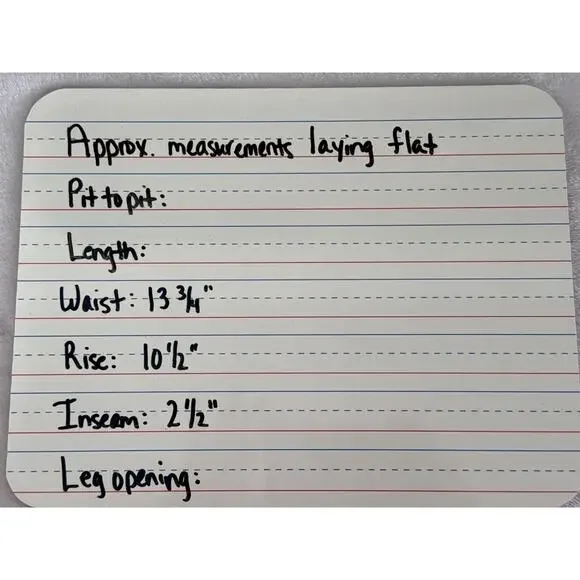 Approx. measurements laying flat
Pit to pit:
Length:
Waist: 13 3/4"
Rise: 10 1/2"
Inseam: 2 1/2"
Leg opening: